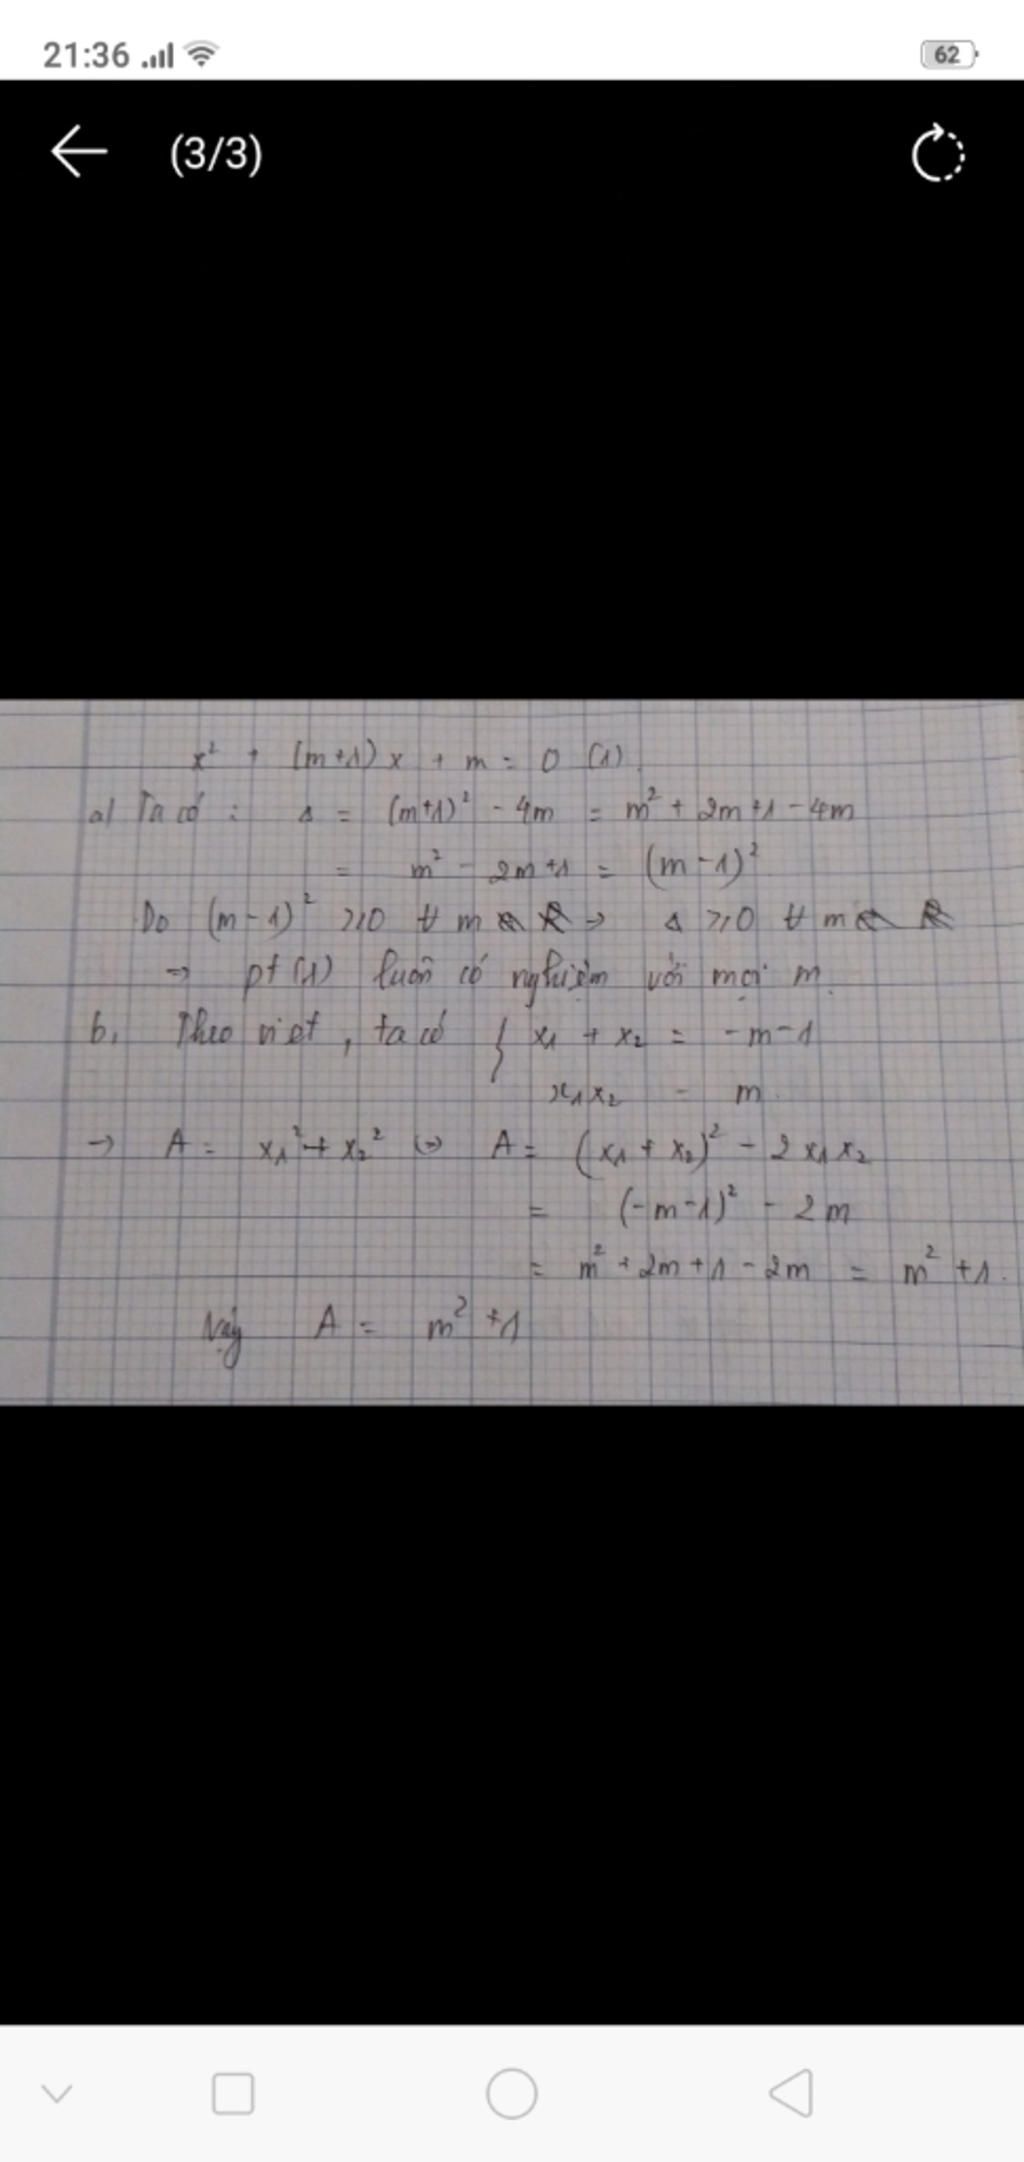 21:36
62
(3/3)
x² + (m+1)x + m = 0 (1)
a/ Ta có : Δ = (m+1)² - 4m = m² + 2m+1 - 4m
= m² - 2m+1 = (m-1)²
Do (m-1)² ≥ 0 ∀ m ∈ R → Δ ≥ 0 ∀ m ∈ R
→ pt (1) luôn có nghiệm với mọi m.
b, Theo viet, ta có { x₁ + x₂ = -m-1
x₁x₂ = m
→ A = x₁² + x₂² ⇔ A = (x₁ + x₂)² - 2x₁x₂
= (-m-1)² - 2m
= m² + 2m+1 - 2m = m² +1.
Vậy A = m² +1